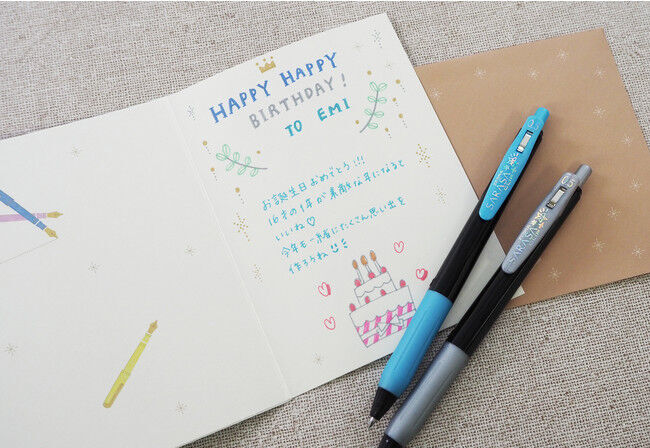 HAPPY HAPPY
BIRTHDAY!
TO EMI
お誕生日おめでとう!!!
16才の1年が素敵な年になると
いいね♡
今年も一緒にたくさん思い出を
作ろうね
SARASA
SARASA